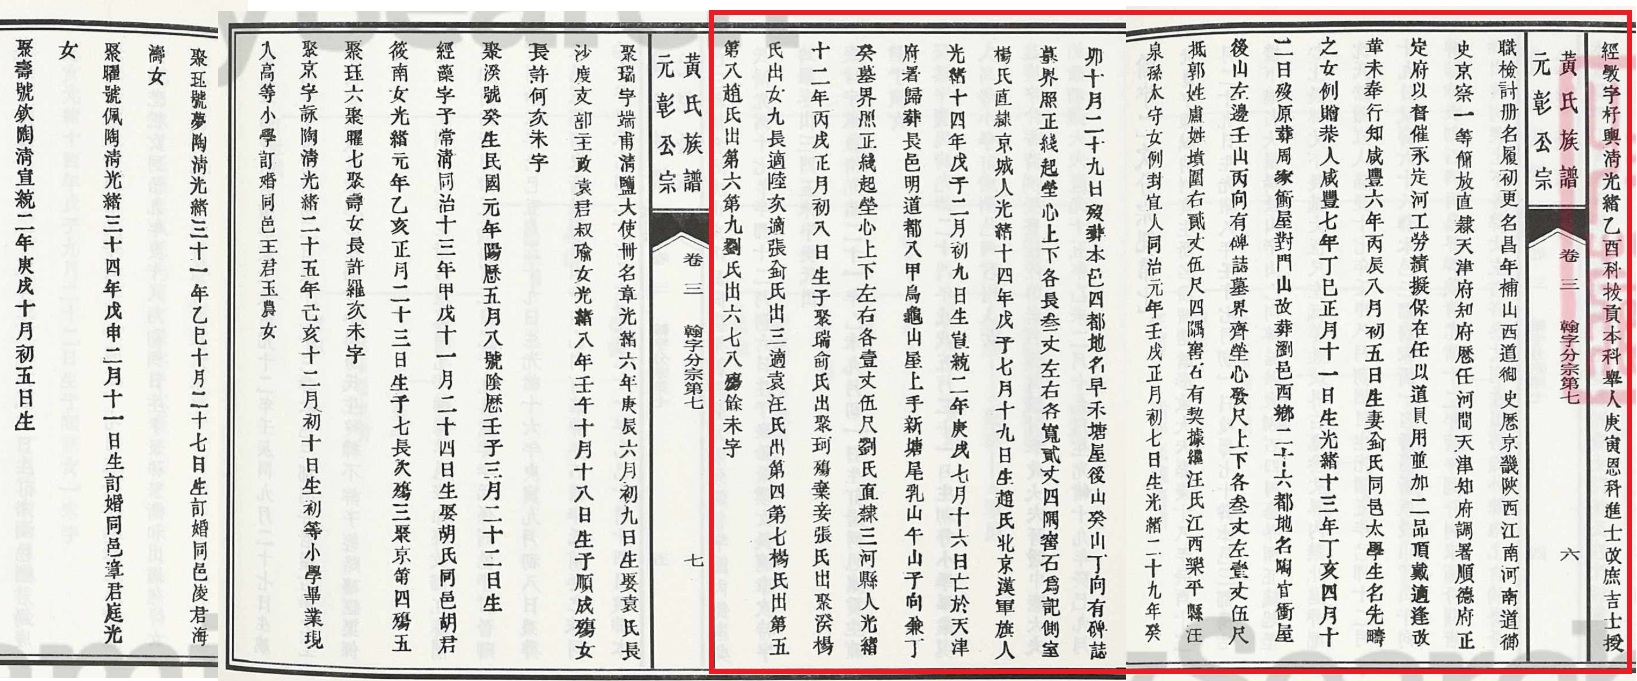 經斆字杍輿清光緒乙酉科拔貢本科舉人庚寅恩科進士改庶吉士授
黃氏族譜
元彰公宗
卷三
翰字分宗第七
六
職檢討册名履初更名昌年補山西道御史歷京畿陝西江南河南道御
史京察一等簡放直隸天津府知府歷任河間天津知府調署順德府正
定府以督催永定河工勞績擬保在任以道員用並加二品頂戴適逢改
革未奉行知咸豐六年丙辰八月初五日生妻俞氏同邑太學生名先疇
之女例贈恭人咸豐七年丁巳正月十一日生光緒十三年丁亥四月十
二日歿原葬周家衝屋對門山故葬瀏邑西鄉二十六都地名陶官衝屋
後山左邊壬山丙向有碑誌墓界齊塋心發尺上下各叁丈左壹丈伍尺
抵郭姓盧姓墳圍右貳丈伍尺四隅窖石有契據繼汪氏江西樂平縣汪
泉孫太守女例封宜人同治元年壬戌正月初七日生光緒二十九年癸
卯十月二十九日歿葬本邑四都地名早禾塘屋後山癸山丁向有碑誌
墓界照正綫起塋心上下各長叁丈左右各寬貳丈四隅窖石爲記側室
楊氏直隸京城人光緒十四年戊子七月十九日生趙氏北京漢軍旗人
光緒十四年戊子二月初九日生宣統二年庚戌七月十六日亡於天津
府署歸葬長邑明道都八甲烏龜山屋上手新塘尾乳山午山子向兼丁
癸墓界照正綫起塋心上下左右各壹丈伍尺劉氏直隸三河縣人光緒
十二年丙戌正月初八日生子聚瑞俞氏出聚珂殤棄妾張氏出聚湀楊
氏出女九長適陸次適張俞氏出三適袁汪氏出第四第七楊氏出第五
第八趙氏出第六第九劉氏出六七八殤餘未字
黃氏族譜
元彰公宗
卷三
翰字分宗第七
七
聚瑞字端甫清鹽大使册名章光緒六年庚辰六月初九日生娶袁氏長
沙度支部主政袁君叔瑜女光緒八年壬午十月十八日生子順成殤女
長許何次未字
聚湀號癸生民國元年陽歷五月八號陰歷壬子三月二十二日生
經藻字予常清同治十三年甲戌十一月二十四日生娶胡氏同邑胡君
筱南女光緒元年乙亥正月二十三日生子七長次殤三聚京第四殤五
聚珏六聚曜七聚壽女長許羅次未字
聚京字詠陶清光緒二十五年己亥十二月初十日生初等小學畢業現
入高等小學訂婚同邑王君玉農女
聚珏號夢陶清光緒三十一年乙巳十月二十七日生訂婚同邑凌君海
濤女
聚曜號佩陶清光緒三十四年戊申二月十一日生訂婚同邑章君庭光
女
聚壽號欽陶清宣統二年庚戌十月初五日生